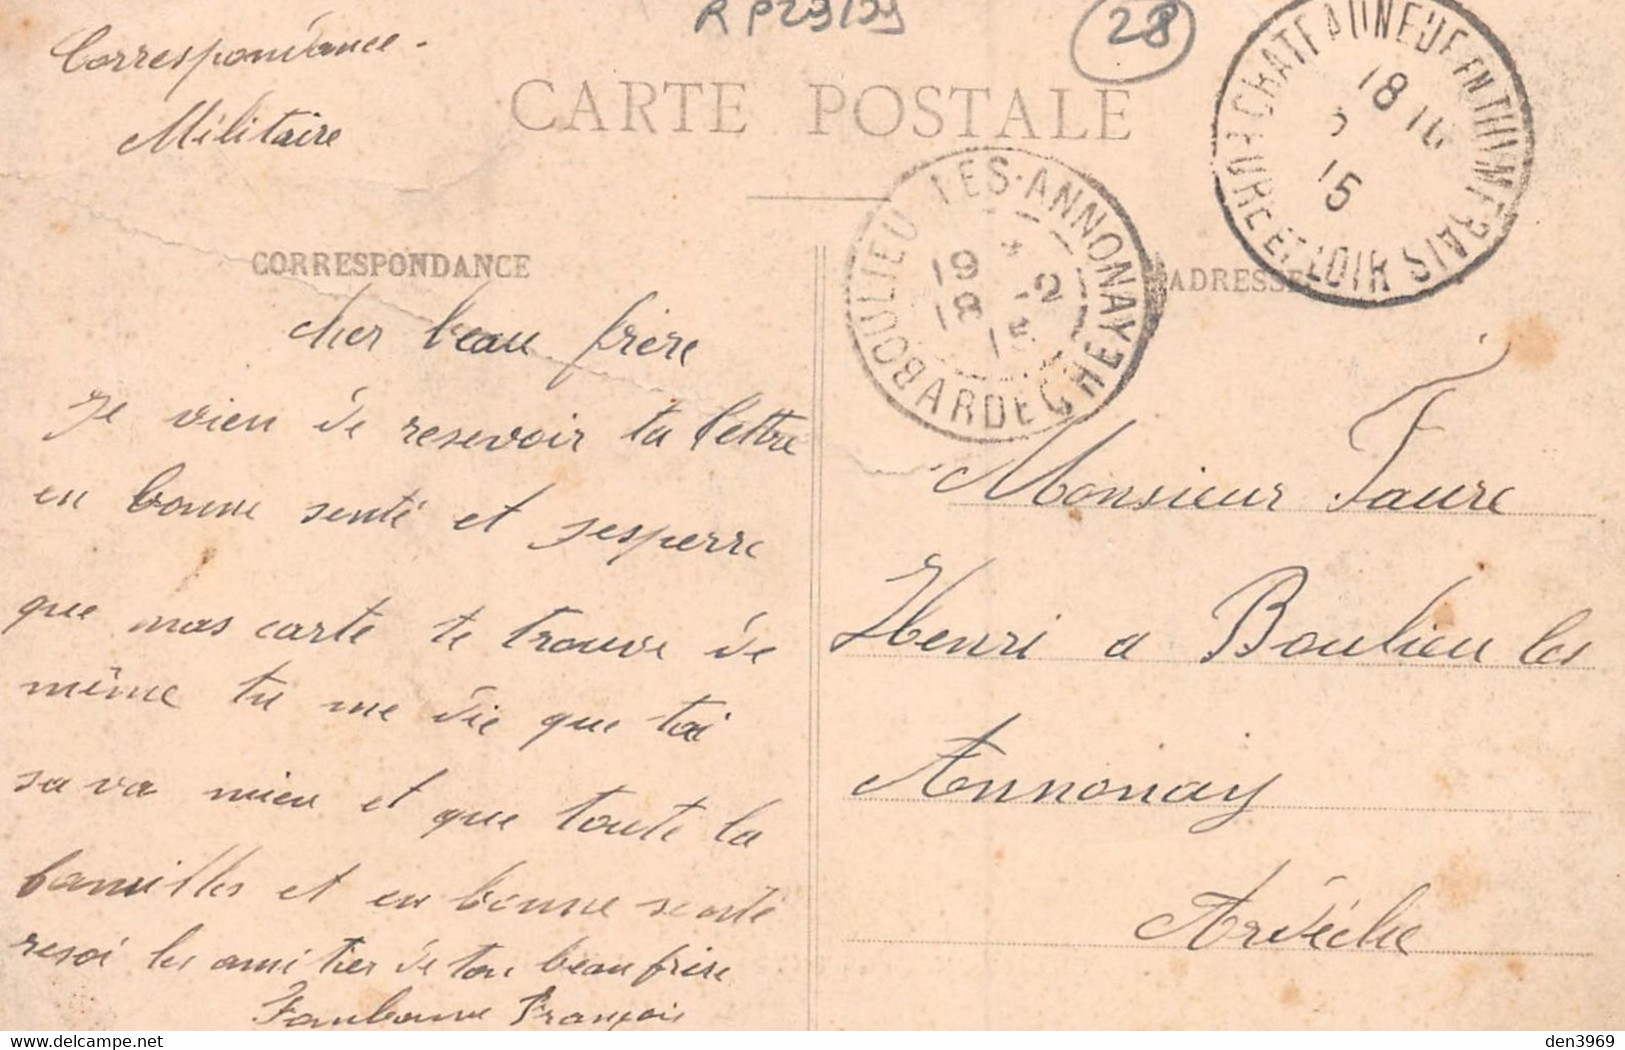 R P29/99
28
Correspondance -
Militaire
CARTE POSTALE
CHATEAUNEUF EN THIMERAIS
EURE ET LOIR
18 15
BOULIEU LES-ANNONAY
ARDECHE
19
18 -2
15
CORRESPONDANCE
ADRESSE
cher beau frère
Je vien de resevoir ta lettre
en bonne senté et j'esperre
que mas carte te trouve de
même tu me die que toi
sa va mieu et que toute la
familles et en bonne senté
resoi les amitier de ton beau frère
François
Monsieur Faure
Henri a Boulieu les
Annonay
Ardèche
den3969